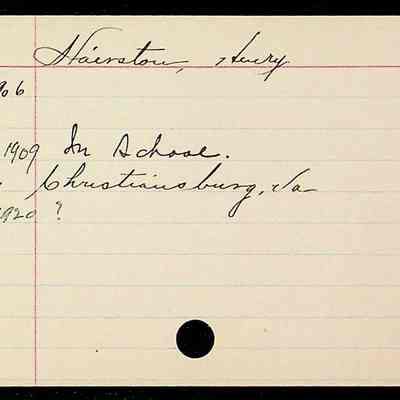 Hairston, Henry
906
1909 In School.
Christiansburg, Va
1920 ?